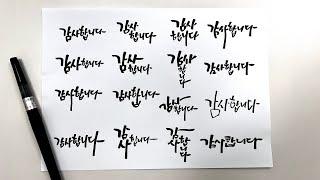 감사합니다 감사합니다 감사합니다 감사합니다
감사합니다 감사합니다 감사합니다 감사합니다
감사합니다 감사합니다 감사합니다 감사합니다
감사합니다 감사합니다 감사합니다 감사합니다